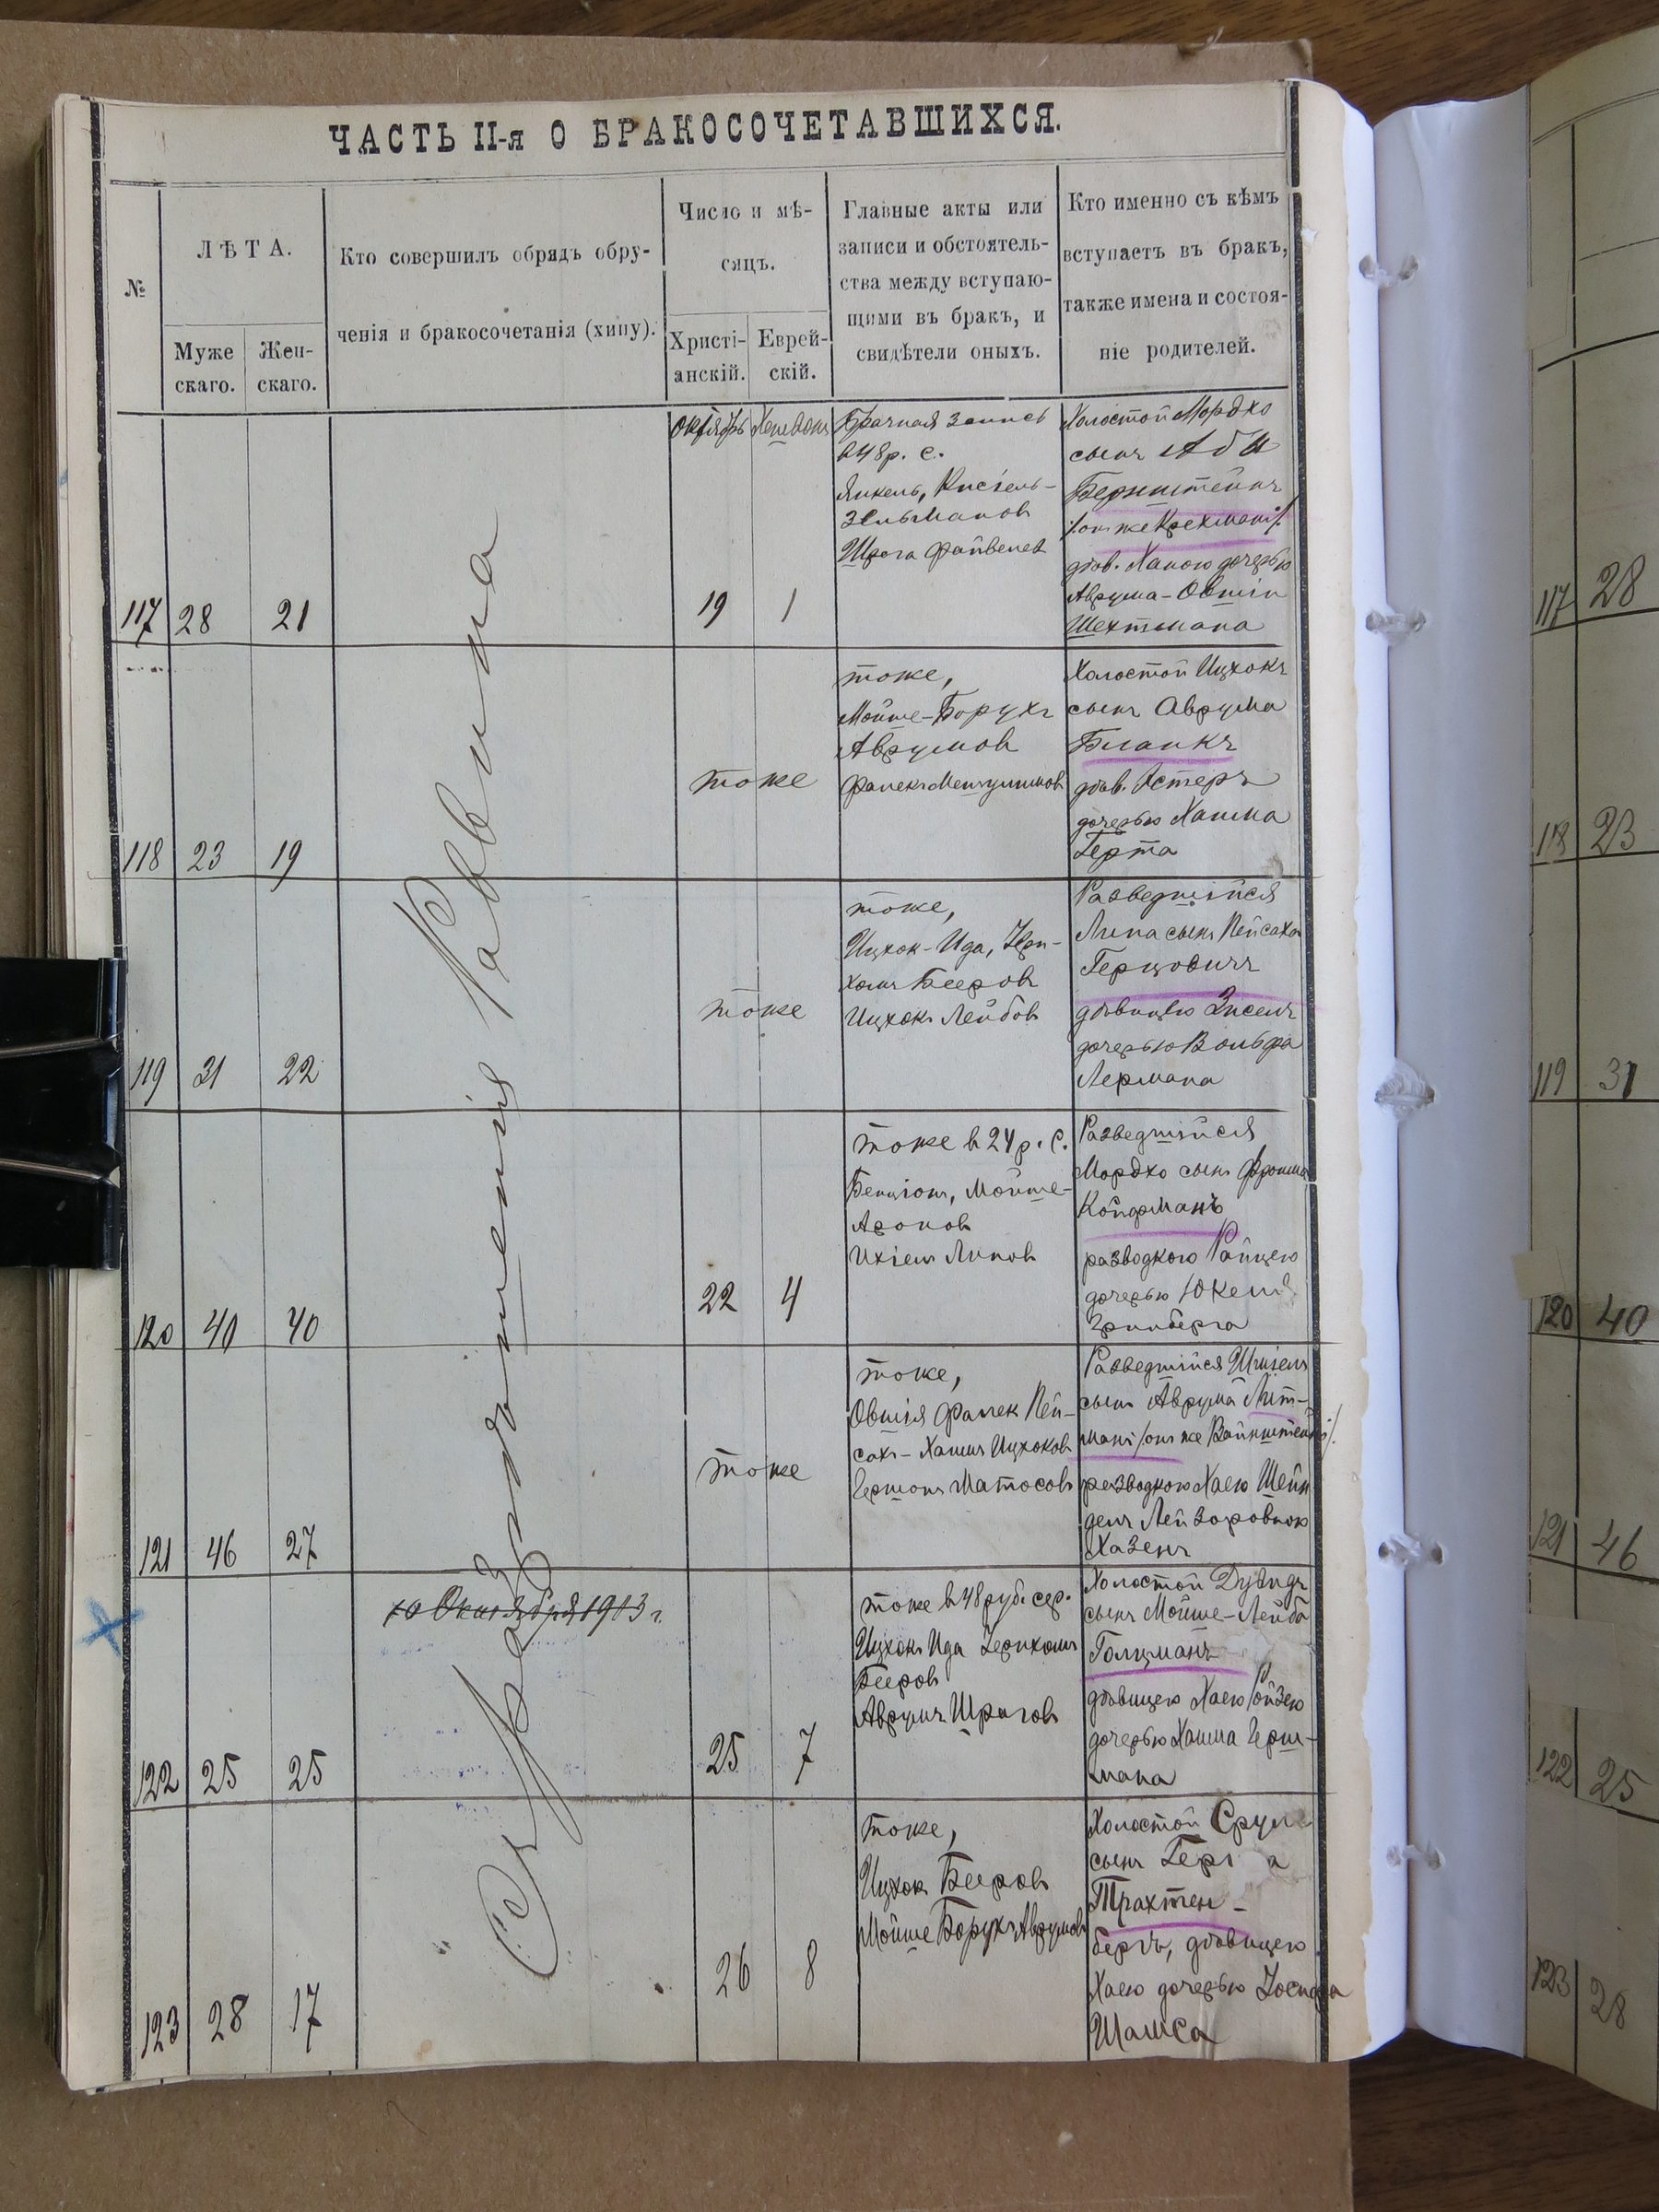 ЧАСТЬ II-я О БРАКОСОЧЕТАВШИХСЯ.
№
ЛѢТА.
Муже
скаго.
Жен-
скаго.
Кто совершилъ обрядъ обру-
ченія и бракосочетанія (хипу).
Число и мѣ-
сяцъ.
Христі-
анскій.
Еврей-
скій.
Главные акты или
записи и обстоятель-
ства между вступаю-
щими въ бракъ, и
свидѣтели оныхъ.
Кто именно съ кѣмъ
вступаетъ въ бракъ,
также имена и состоя-
ніе родителей.
Съ разрѣшенія Раввина
117 28 21
Октябрь
19 1
Брачная запись
в 48 р. с.
Янкель, Кисіель-
Зельманов
Шрага Файвелев
Холостой Мордко
сынъ Аби
Бернштейнъ
/: он же Крехманъ :/
дѣв. Ханою дочерью
Аврума-Овшія
Шехтмана
118 23 19
тоже
тоже,
Мойше-Борухъ
Аврумов
Холостой Ицхокъ
сынъ Аврума
Бланкъ
дѣв. Эстеръ
дочерью Хаима
Герта
119 31 22
тоже
тоже,
Ицхок-Ида, Іери-
хомъ Бееров
Ицхокъ Лейбов
Разведшійся
Липа сынъ Пейсаха
Герцовичъ
дѣвицею Зиселъ
дочерью Вольфа
Лермана
120 40 40
22 4
тоже в 24 р. с.
Бенціонъ, Мойше-
Аронов
Ихіель Липов
Разведшійся
Мордко сынъ Фроима
Койфманъ
разводкою Райцею
дочерью Юкеля
Гринберга
121 46 27
тоже
тоже,
Овшія Фалек Пей-
сахъ-Хаимъ Ицхоков
Гершонъ Матосов
Разведшійся Шмiель
сынъ Аврума Лит-
манъ /: он же Вайнштейнъ :/
разводкою Хаею Шейн
делъ Лейзоровною
Хазенъ
10 Октября 1903 г.
122 25 25
25 7
тоже в 48 руб. сер.
Ицхокъ Ида Іерихомъ
Бееров
Аврумъ Шрагов
Холостой Дувидъ
сынъ Мойше-Лейба
Голцманъ
дѣвицею Хаею Ройзею
дочерью Хаима Герш-
мана
123 28 17
26 8
тоже,
Ицхок Бееров
Мойше Борухъ Аврумов
Холостой Сруль
сынъ
Трахтен-
бергъ, дѣвицею
Хаею дочерью Іосифа
Шамса
117 28
118 23
119 31
120 40
121 46
122 25
123 28